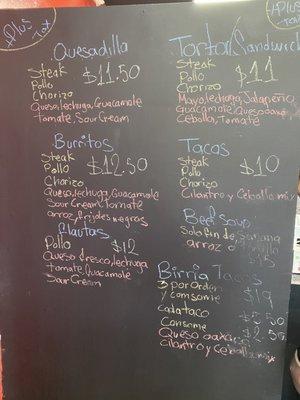 Plus
Tax
Quesadilla
Steak
Pollo $11.50
Chorizo
Queso, lechuga, Guacamole
Tomate, Sour Cream
Burritos
Steak
Pollo $12.50
Chorizo
Queso, lechuga, Guacamole
Sour Cream, tomate
arroz, frijoles negros
flautas
Pollo $12
Queso fresco, lechuga
tomate, Guacamole
Sour Cream
APlus
Tax
Torta/Sandwich
Steak
Pollo $11
Chorizo
Mayo, lechuga, Jalapeño
Guacamole, Queso
Cebolla, Tomate
Tacos
Steak
Pollo $10
Chorizo
Cilantro y Cebolla mix
Beef soup
Solo fin de semana
arroz o
Birria Tacos
3 por orden $19
y consome
cada taco $5.50
Consome $2.50
Queso oaxaca
cilantro y Cebolla mix